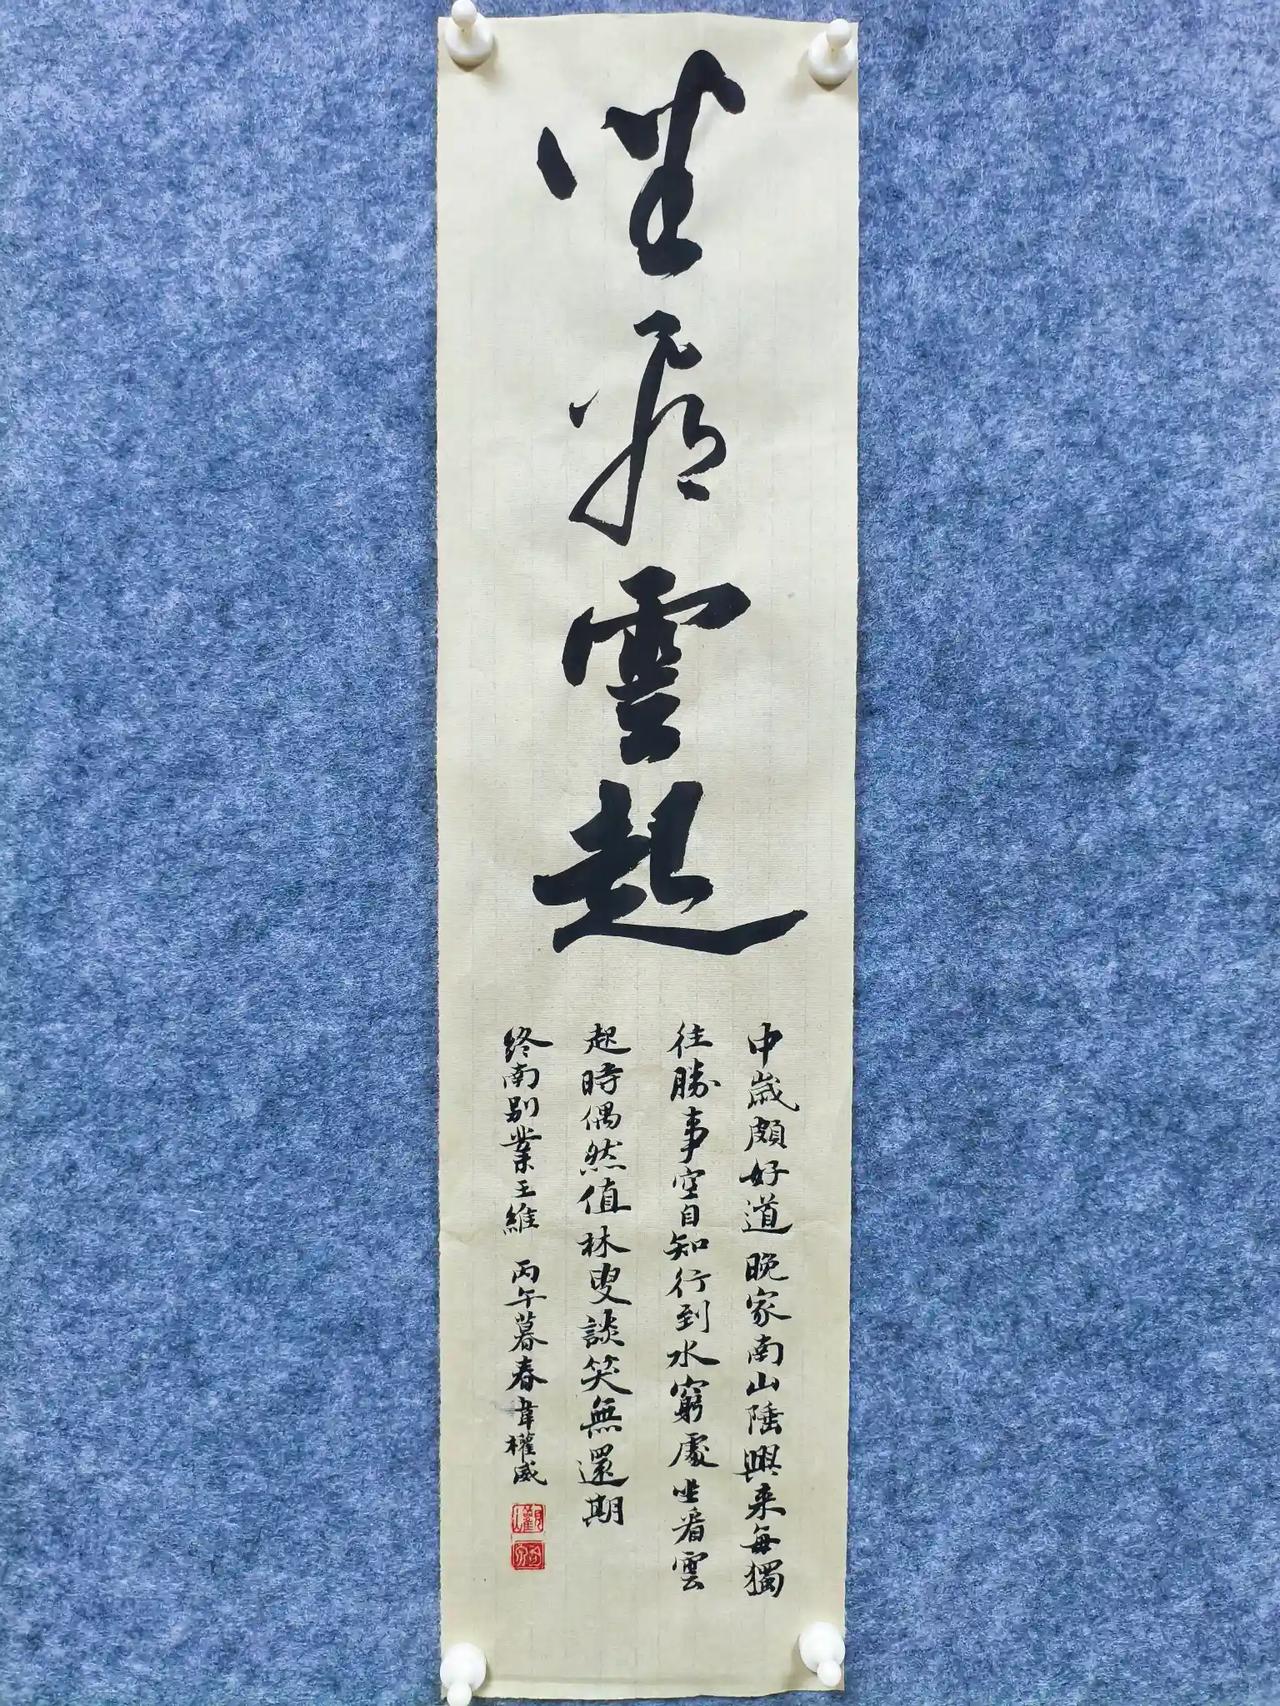 坐看雲起
中歲頗好道晚家南山陲興来每獨
往勝事空自知行到水窮處坐看雲
起時偶然值林叟談笑無還期
終南别業王維 丙午暮春韋權威